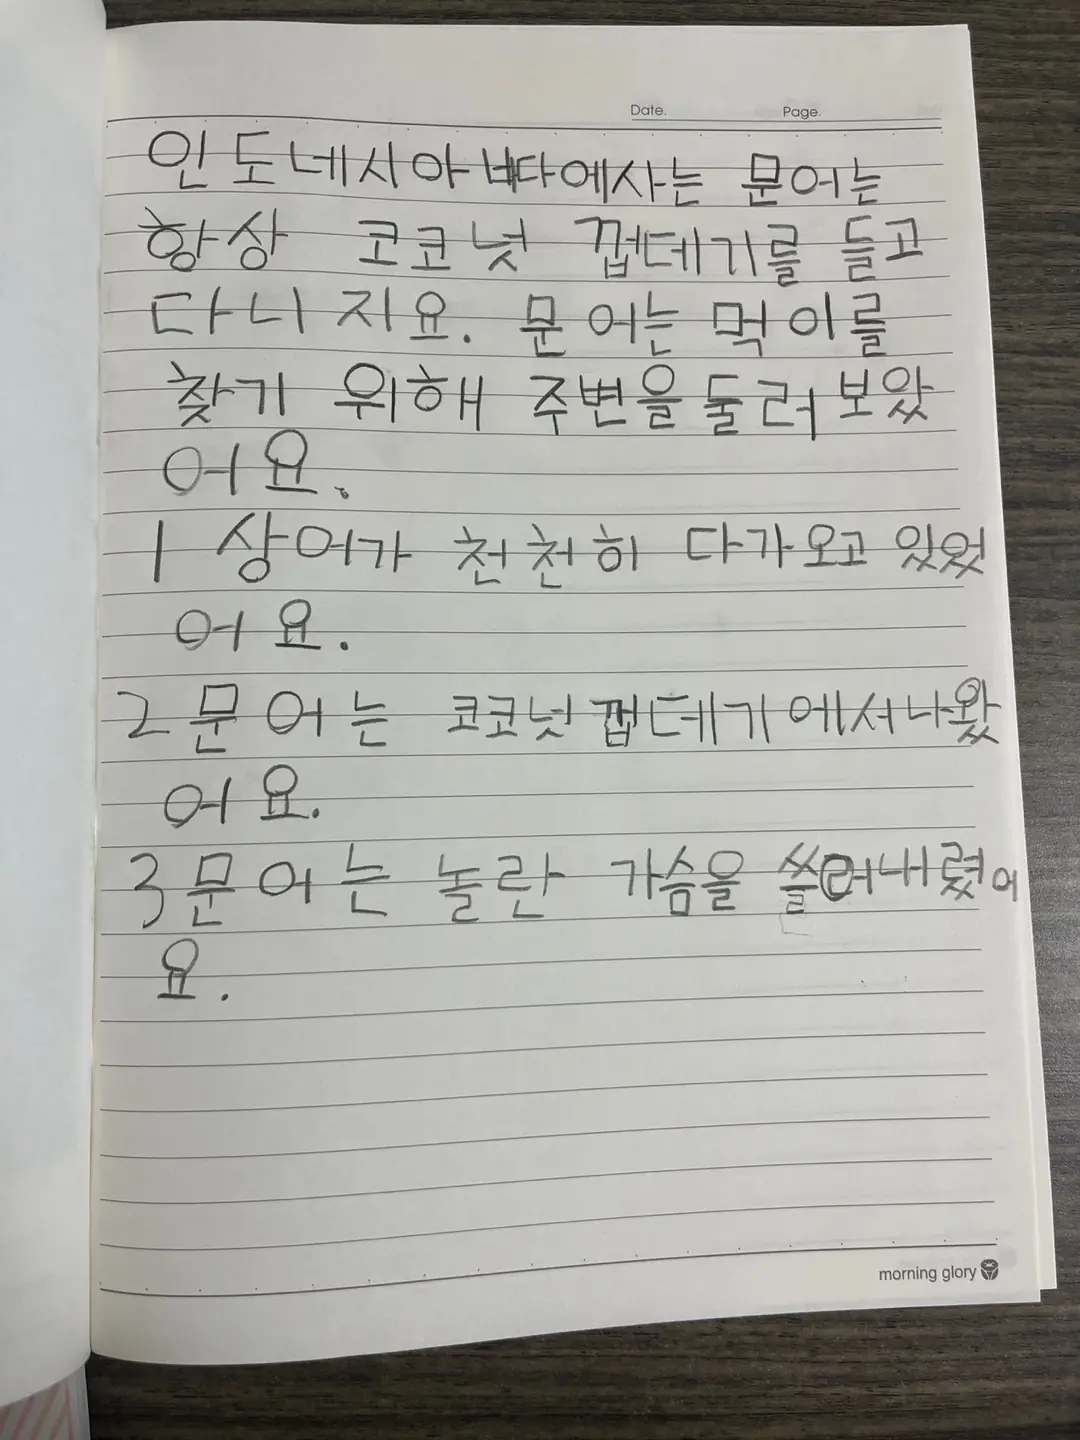 Date.
Page.
인도네시아 바다에사는 문어는
항상 코코넛 껍데기를 들고
다니지요. 문어는 먹이를
찾기 위해 주변을 둘러보았
어요.
1 상어가 천천히 다가오고 있었
어요.
2 문어는 코코넛 껍데기에서나왔
어요.
3 문어는 놀란 가슴을 쓸어내렸어
요.
morning glory